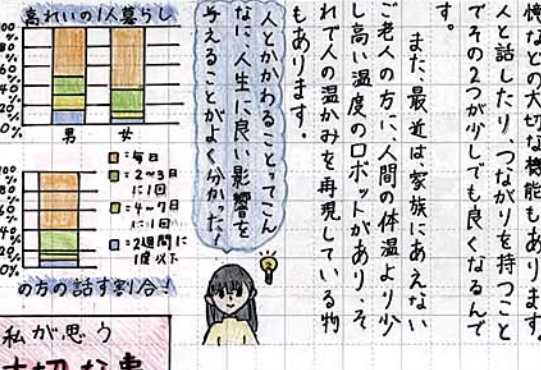 憶などの大切な機能もあります。
人と話したり、つながりを持つこと
でその2つが少しでも良くなるんで
す。
また、最近は、家族にあえない
ご老人の方に、人間の体温より少
し高い温度のロボットがあり、そ
れで人の温かみを再現している物
もあります。
人とかかわることってこん
なに、人生に良い影響を
与えることがよく分かった!
高れいの1人暮らし
00%
80%
60%
40%
20%
0%
男
女
100%
80%
60%
40%
20%
0%
:毎日
:2~3日
に1回
:4~7日
に1回
:2週間に
1度以下
の方の話す割合!
私が思う
大切な事